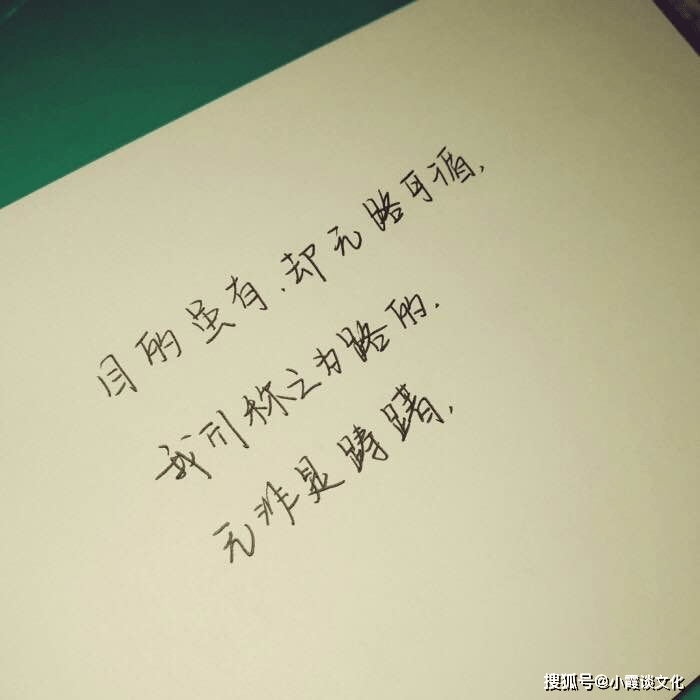 目的虽有.却无路可循.
我们称之为路的.
无非是踌躇.
搜狐号@小霞谈文化